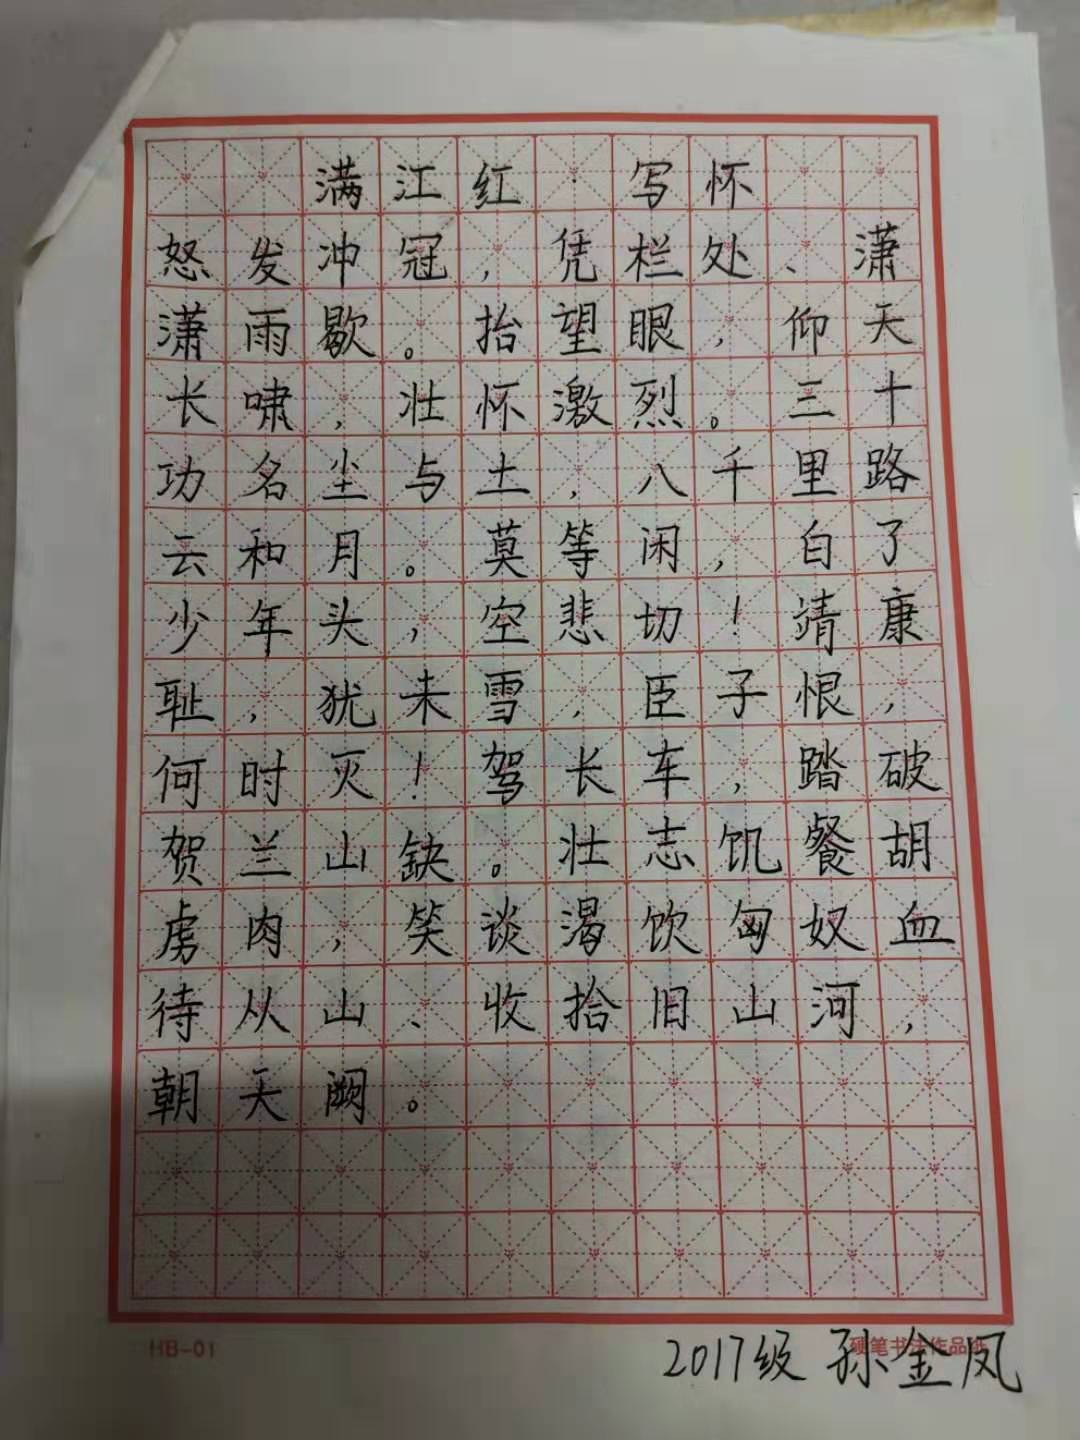 满江红·写怀
怒发冲冠，凭栏处、潇
潇雨歇。抬望眼，仰天
长啸，壮怀激烈。三十
功名尘与土，八千里路
云和月。莫等闲，白了
少年头，空悲切！靖康
耻，犹未雪，臣子恨，
何时灭！驾长车，踏破
贺兰山缺。壮志饥餐胡
虏肉，笑谈渴饮匈奴血
待从山、收拾旧山河，
朝天阙。
HB-01 硬笔书法作品纸
2017级 孙金凤